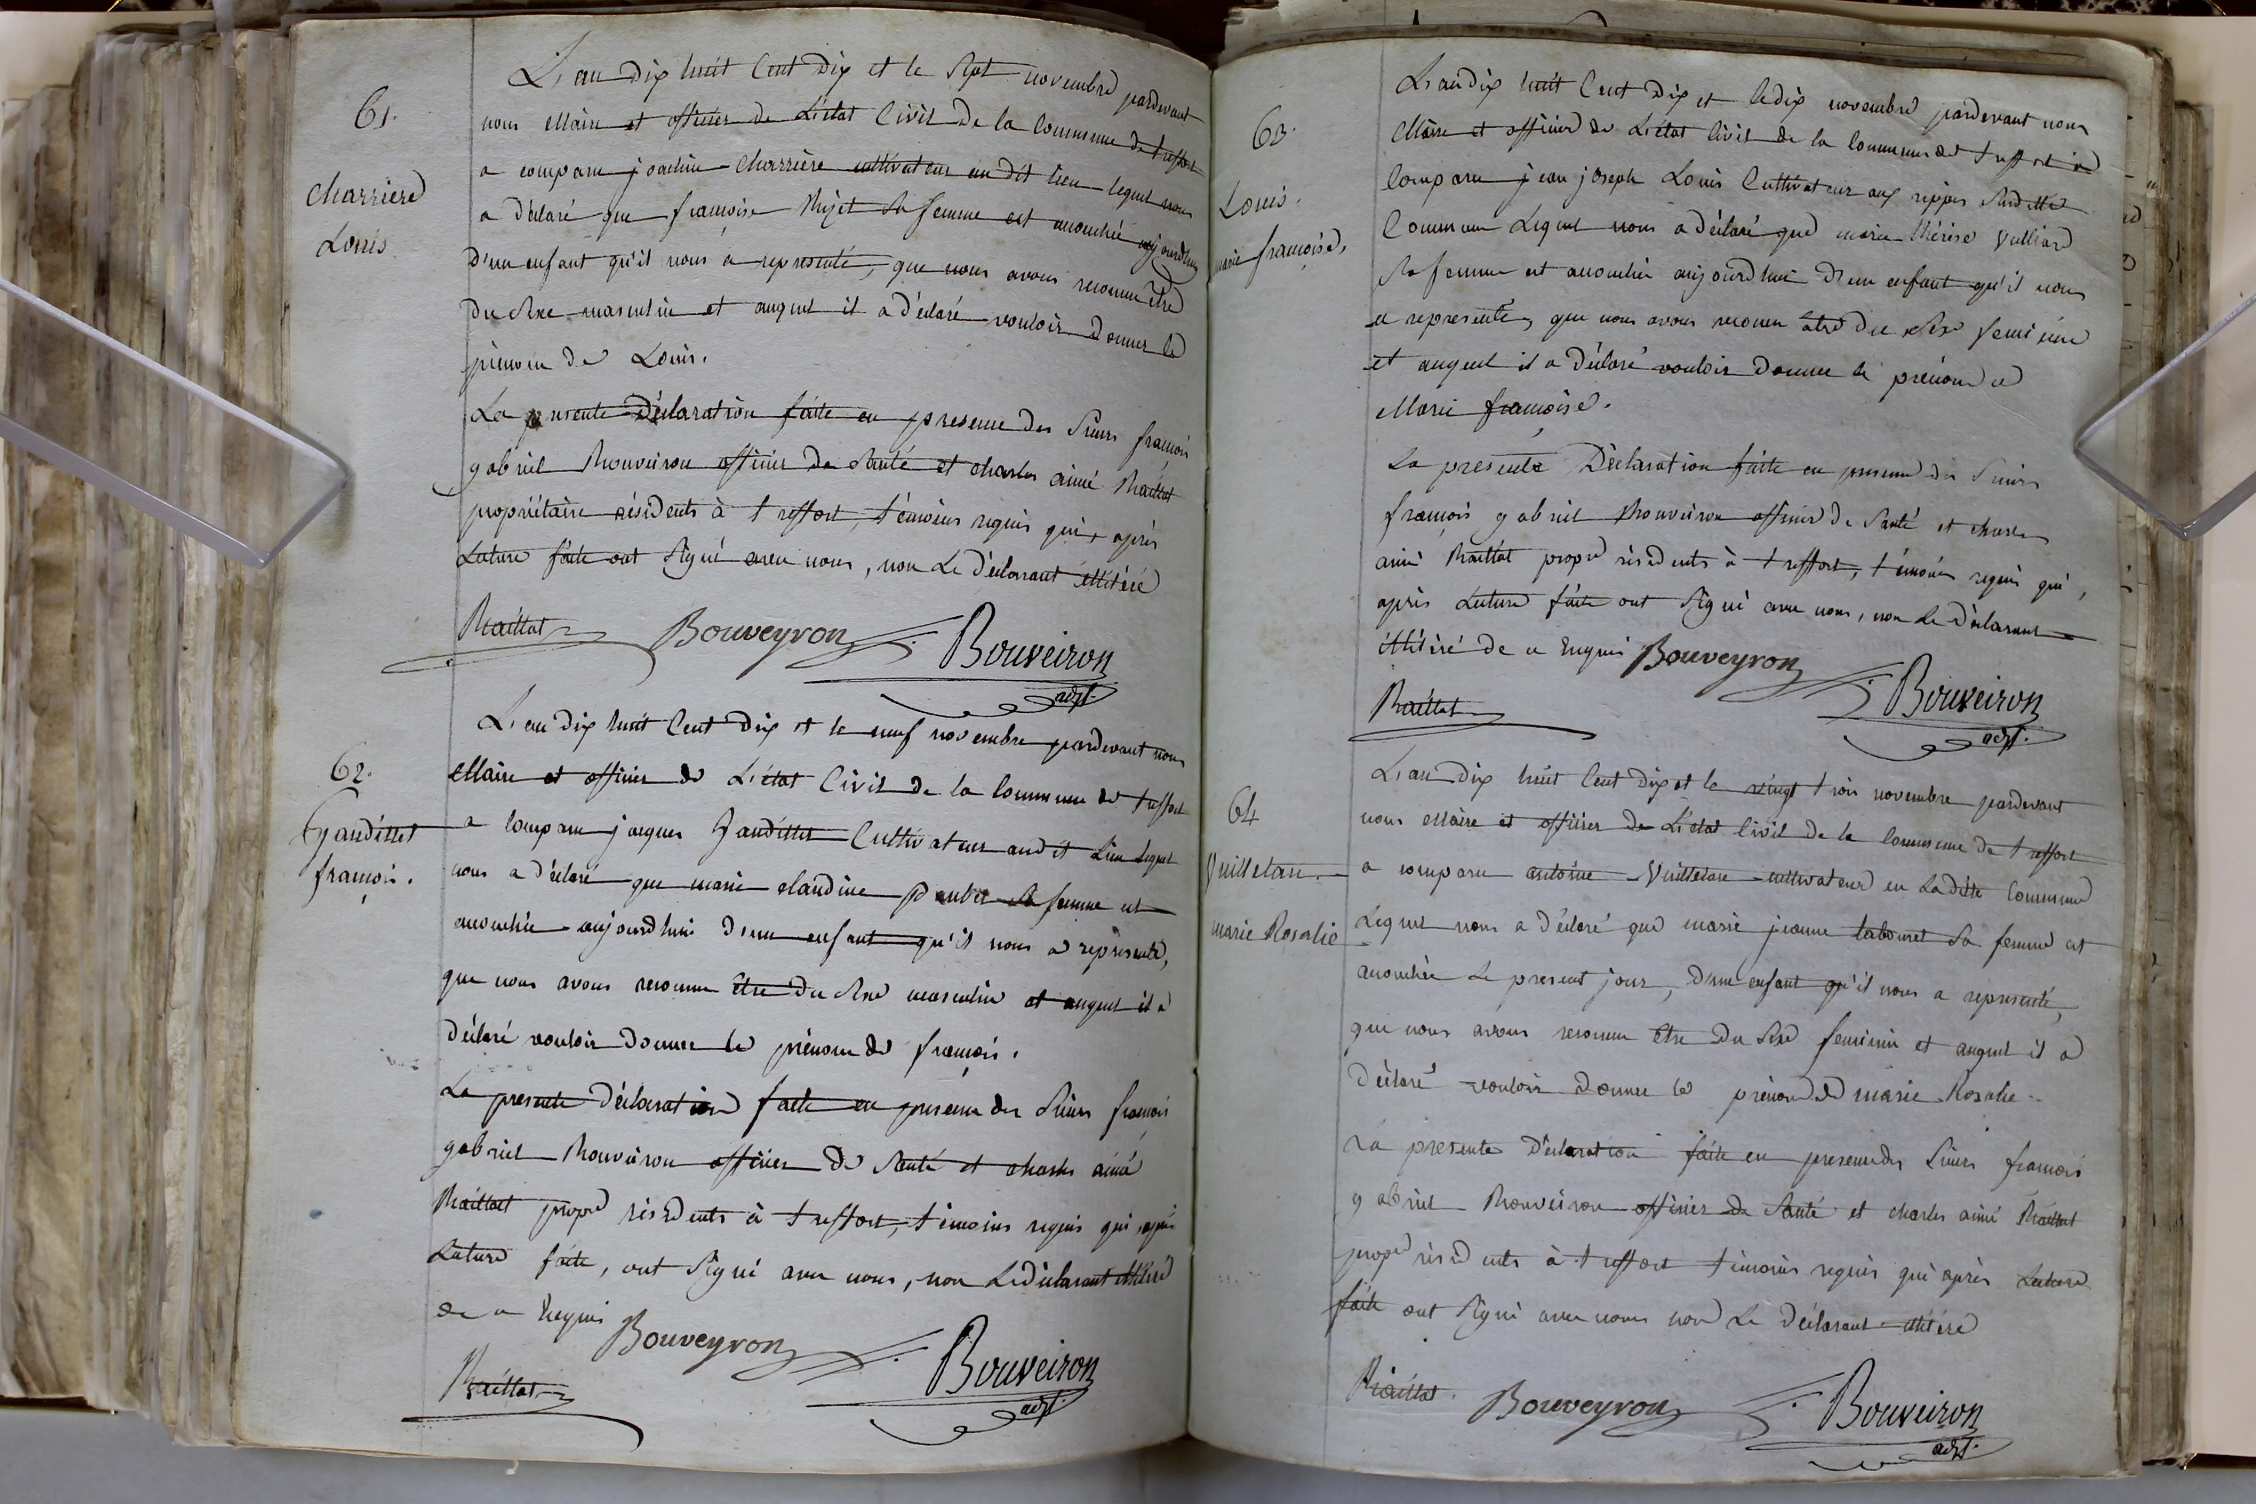 61.
Charriere
Louis
L'an dix huit Cent dix et le Sept novembre pardevant
nous Maire et officier de L'état Civil de la Commune de treffort
a comparu joachim Charrière cultivateur au dit lieu lequel nous
a déclaré que françoise Sa femme est accouchée aujourdhui
d'un enfant qu'il nous a representé, que nous avons reconnu être
du Sexe masculin et auquel il a déclaré vouloir donner le
prénom de Louis.
La presente Déclaration faite en presence des Sieurs françois
gabriel Bouveiron officier de Santé et charles aimé Maillat
propriétaire résidents à treffort, témoins requis qui, après
Lecture faite ont Signé avec nous, non Le Déclarant illitéré
Maillat Bouveyron Bouveiron
adjt.
62.
Gaudillet
françois.
L'an dix huit Cent dix et le neuf novembre pardevant nous
Maire et officier de L'état Civil de la Commune de treffort
a Comparu jacques Gaudillet Cultivateur audit Lieu Lequel
nous a déclaré que marie claudine Sa femme est
accouchée aujourdhui d'un enfant qu'il nous a représenté,
que nous avons reconnu être du Sexe masculin et auquel il a
déclaré vouloir donner le prénom de françois.
La presente Déclaration faite en presence des Sieurs françois
gabriel Bouveiron officier de Santé et charles aimé
Maillat propre résidents à treffort, témoins requis qui après
Lecture faite, ont Signé avec nous, non Le Déclarant illitéré
de ce Enquis Bouveyron Bouveiron
Maillat adjt.
63.
Louis.
marie françoise.
L'an dix huit Cent dix et le dix novembre pardevant nous
Maire et officier de L'état Civil de la Commune de treffort a
Comparu jean joseph Louis Cultivateur aux rippes Sudite
Commune Lequel nous a déclaré que marie thérèse Vulliard
Sa femme est accouchée aujourdhui d'un enfant qu'il nous
a representé, que nous avons reconnu être du Sexe feminin
et auquel il a déclaré vouloir donner le prénom de
Marie françoise.
La presente Déclaration faite en presence des Sieurs
françois gabriel Bouveiron officier de Santé et charles
aimé Maillat propre résidents à treffort, témoins requis qui,
après Lecture faite ont Signé avec nous, non Le Déclarant
illitéré de ce Enquis Bouveyron Bouveiron
Maillat adjt.
64
Vuilletan.
marie Rosalie
L'an dix huit Cent dix et le vingt trois novembre pardevant
nous Maire et officier de L'état Civil de la Commune de treffort
a comparu antoine Vuilletan cultivateur en Ladite Commune
Lequel nous a déclaré que marie jeanne tabouret Sa femme est
accouchée Le present jour, d'un enfant qu'il nous a representé,
que nous avons reconnu être du Sexe feminin et auquel il a
déclaré vouloir donner le prénom de marie Rosalie.
La presente Déclaration faite en presence des Sieurs françois
gabriel Bouveiron officier de Santé et charles aimé Maillat
propre résidents à treffort témoins requis qui après Lecture
faite ont Signé avec nous non Le Déclarant illitéré
Maillat. Bouveyron Bouveiron
adjt.